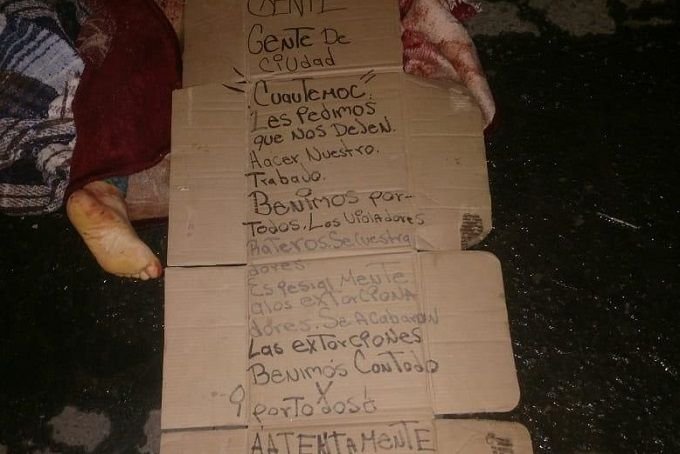 GENTE
GENTE De
CiUdad
"CUaUTEMOC"
Les Pedimos
que Nos DeJeN.
Hacer, Nuestro.
Trabajo.
BeNimos por-
Todos. Los Violadores
Rateros. Secuestra
dores
Espesial Mente
alos exTorCioNa
dores. Se AcabaroN
Las exTorcioNes
BeNimos ConTodo
Y
porTodos
AATENTAMENTE